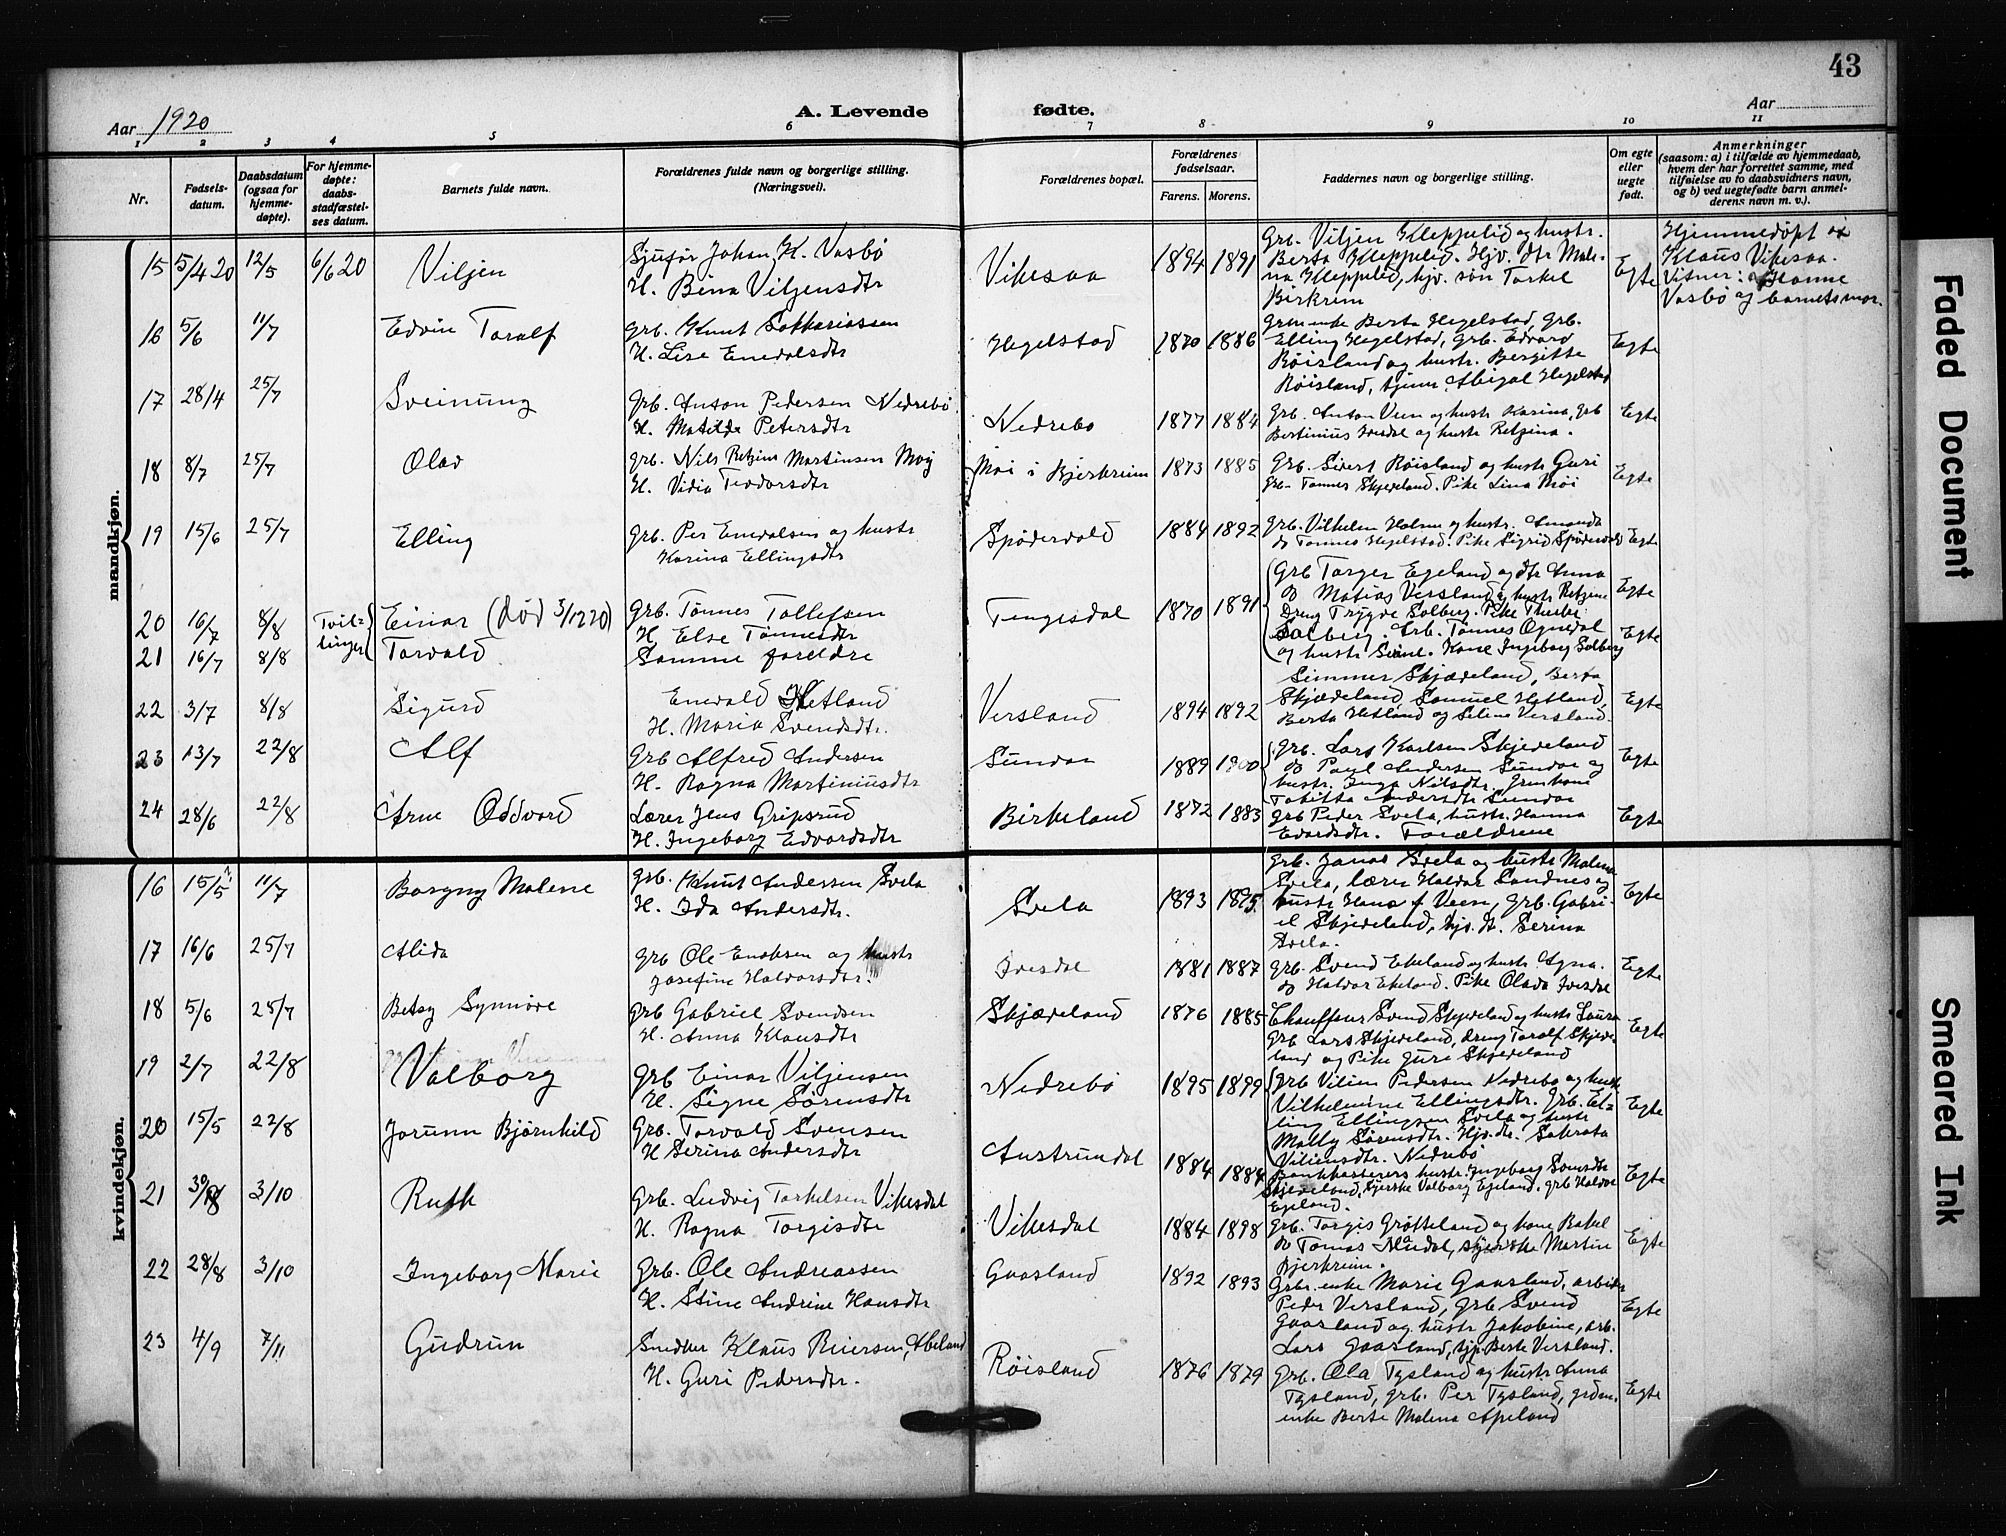 43
Aar 1920
A. Levende
fødte.
Aar
1 2 3 4 5 6 7 8 9 10 11
Nr.
Fødsels-
datum.
Daabsdatum
(ogsaa for
hjemme-
døpte).
For hjemme-
døpte:
daabs-
stadfæstel-
ses datum.
Barnets fulde navn.
Forældrenes fulde navn og borgerlige stilling.
(Næringsvei).
Forældrenes bopæl.
Forældrenes
fødselsaar.
Farens. Morens.
Faddernes navn og borgerlige stilling.
Om egte
eller
uegte
født.
Anmerkninger
(saasom: a) i tilfælde av hjemmedaab,
hvem der har forrettet samme, med
tilføielse av to daabsvidners navn,
og b) ved uegtefødte barn anmel-
derens navn m. v.).
mandkjøn.
15 5/4 20 12/5 6/6 20 Viljen
Sjufør Johan K. Vasbø
H. Bina Viljensdtr
Vikesaa 1894 1891
Grb. Viljen Kleppelid og hustr.
Berta Kleppelid. Hjv. dtr Male-
na Kleppelid, hjv. søn Torkel
Birkrem
Egte
Hjemmedøpt av
Klaus Vikesaa.
Vitner: Hanne
Vasbø og barnets mor.
16 5/6 11/7 Edvin Toralf
Grb. Knut Sakkariassen
H. Lise Enevalsdtr
Hegelstad 1870 1886
Grm enke Berta Hegelstad, Grb.
Elling Hegelstad, Grb. Edvard
Røisland og hustr. Bergitte
Røisland, tjener Abigal Hegelstad
Egte
17 28/4 25/7 Sveinung
Grb. Anton Pedersen Nedrebø
H. Matilde Petersdtr
Nedrebø 1877 1884
Grb. Anton Veen og hustr Karina, Grb
Bertinius Ivesdal og hustr Retzina.
Egte
18 8/7 25/7 Olav
Grb. Nils Retzius Martinsen Moy
H. Vidia Teodorsdtr
Moi i Bjerkreim 1873 1885
Grb. Sivert Røisland og hustr Guri
Grb. Tønnes Skjeveland. Pike Lina Moi
Egte
19 15/6 25/7 Elling
Grb. Per Enevalsen og hustr
Karina Ellingsdtr
Spødervold 1884 1892
Grb. Vilhelm Holmen og hustr. Amanda
do Tønnes Hegelstad. Pike Sigrid Spødervold
Egte
20 16/7 8/8 Tvil-
linger
Einar (død 3/12 20)
Grb. Tønnes Tollefsen
H. Else Tønnesdtr
Tengesdal 1870 1891
Grb Torger Egeland og dtr Anna
do Matias Versland og hustr Retzine
Dreng Trygve Solberg. Pike Thesba
Solberg. Arb. Tønnes Ognedal
og hustr Seine. Kone Ingeborg Solberg
Egte
21 16/7 8/8 Torvald
Samme foreldre
Egte
22 3/7 8/8 Sigurd
Enevald Hetland
H. Maria Svendsdtr.
Versland 1894 1892
Simmer Skjædeland, Berta
Skjædeland, Samuel Hetland,
Berta Hetland og Seline Versland.
Egte
23 13/7 22/8 Alf
Grb Alfred Andersen
H. Ragna Martiniusdtr
Sundar 1889 1900
Grb. Lars Karlsen Skjeveland
do Paul Andersen Sundar og
hustr. Inga Nilsdtr, Grm kone
Tabitta Andersdtr Sundar
Egte
24 28/6 22/8 Arne Oddvard
Lærer Jens Gripsrud
H. Ingeborg Edvardsdtr
Birkeland 1872 1883
Grb Peder Svela, hustr. Hanna
Edvardsdtr. Forældrene
Egte
kvindekjøn.
16 15/5 11/7 Borgny Malene
Grb. Knut Anderssen Svela
H. Ida Andersdtr.
Svela 1893 1895
Grb. Janas Svela og hustr Malena
Svela, lærer Haldor Sandnes og
hustr Hana f. Veen, Grb. Gabri-
el Skjeveland, hjv. dt. Serina
Svela.
Egte
17 16/6 25/7 Alida
Grb Ole Enoksen og hustr
Josefine Haldorsdtr.
Ivesdal 1881 1887
Grb. Svend Ekeland og hustr. Agna.
do Haldor Ekeland. Pike Olava Ivesdal
Egte
18 5/6 25/7 Betsy Synnøve
Grb Gabriel Svendsen
H. Anna Klausdtr
Skjæveland 1876 1885
Chauffeur Svend Skjeveland og hustr Laura
Grb Lars Skjeveland, dreng Toralf Skjeve-
land og Pike Guri Skjeveland
Egte
19 2/7 22/8 Valborg
Grb Einar Viljensen
H. Signe Sørensdtr
Nedrebø 1895 1899
Grb Viljen Pedersen Nedrebø og hustr
Vilhelmine Ellingsdtr. Grb. El-
ling Ellingsen Svela og hustr
Molly Sørensdtr. Hjv. dtr. Sakrata
Viliensdtr. Nedrebø
Egte
20 15/5 22/8 Jorunn Bjørnhild
Grb. Torvald Svensen
H Serina Andersdtr
Austrumdal 1884 1884
Bankkasserers hustr. Ingeborg Svensdtr
Skjeveland, Bjerke Valborg Egeland. Grb Haldor
Egeland.
Egte
21 30/8 3/10 Ruth
Grb. Ludvig Torkelsen Vikesdal
H. Ragna Torgisdtr
Vikesdal 1884 1898
Grb. Torgis Grøtteland og kone Rakel
do Tomas Nædal, Martin
Bjerkreim.
Egte
22 28/8 3/10 Ingeborg Marie
Grb. Ole Andreassen
H. Stine Andrine Hansdtr
Gaasland 1892 1893
Grbr. enke Marie Gaasland, arbeider
Peder Versland, Grb Svend
Gaasland og hustr Jakobine, arb.
Lars Gaasland, tjp. Berte Versland.
Egte
23 4/9 7/11 Gudrun
Snedker Klaus Reiersen, Abeland
H. Guri Pedersdtr.
Røisland 1876 1879
Grb. Ola Tysland og hustr Anna
Tysland, Grb. Per Tysland, grdm.
enke Berte Malena Apeland
Egte
Faded Document
Smeared Ink